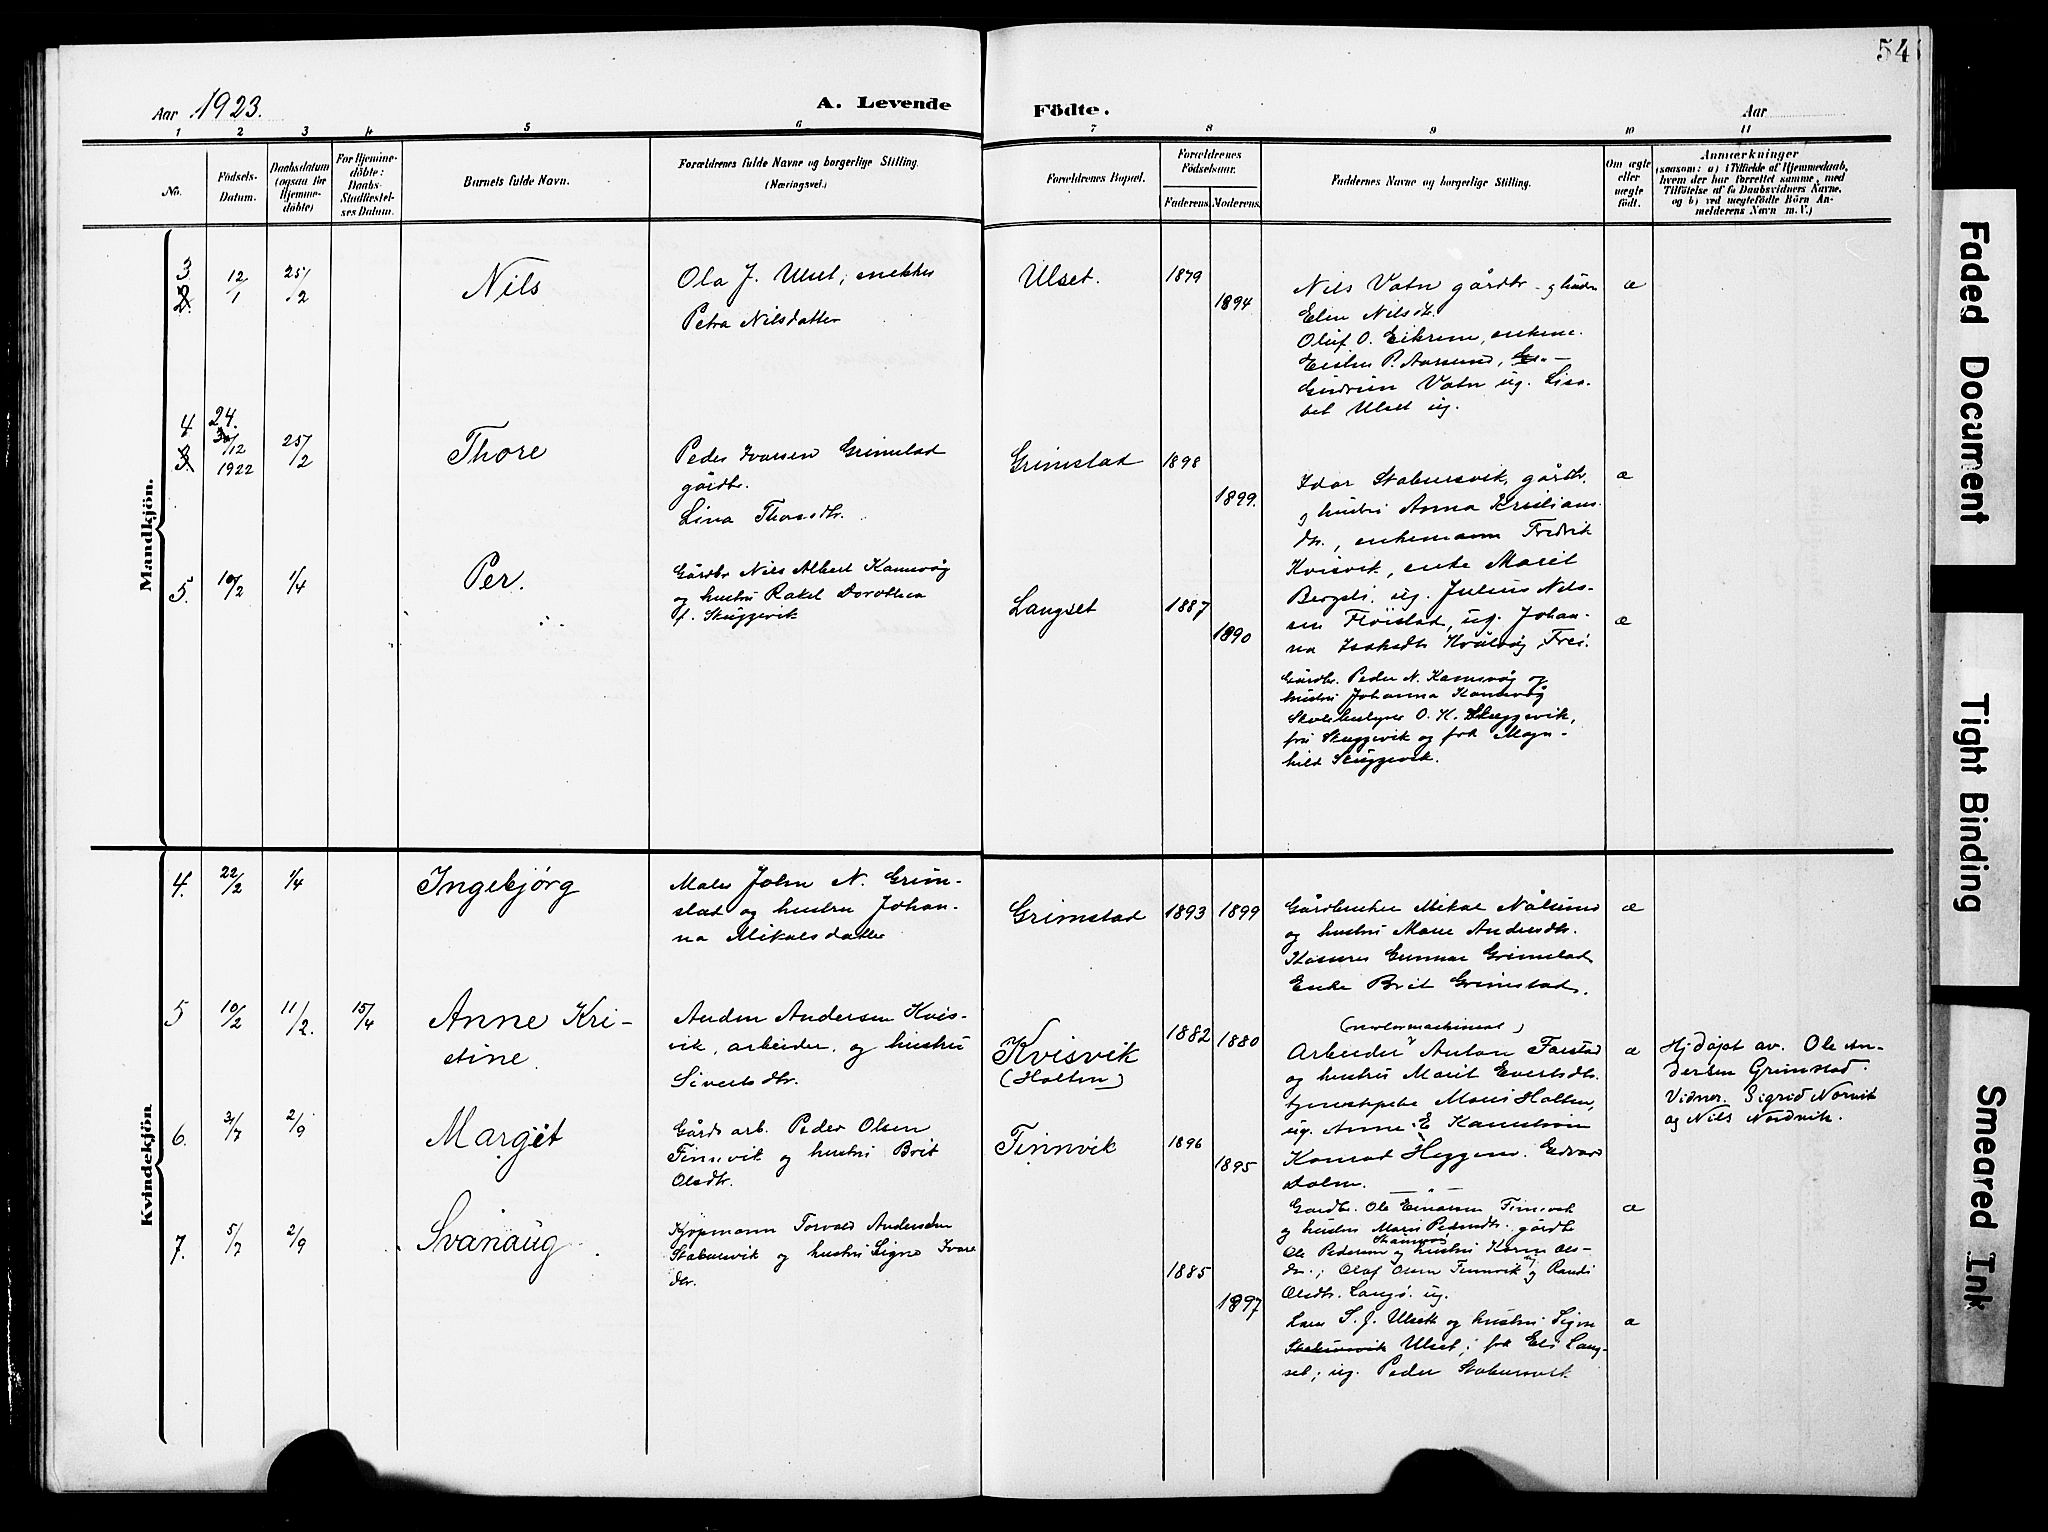 54
Aar 1923.
A. Levende
Födte.
Aar
1 2 3 4 5 6 7 8 9 10 11
No.
Födsels-
Datum.
Daabsdatum
(ogsaa for
Hjemme-
döbte)
For Hjemme-
döbte:
Daabs-
Stadfæstel-
ses Datum.
Barnets fulde Navn.
Forældrenes fulde Navne og borgerlige Stilling.
(Næringsvei.)
Forældrenes Bopæl.
Forældrenes
Fødselsaar.
Faderens.
Moderens.
Faddernes Navne og borgerlige Stilling.
Om ægte
eller
uægte
födt.
Anmærkninger
(saasom: a) i Tilfælde af Hjemmedaab,
hvem der har forrettet samme, med
Tilföielse af to Daabsvidners Navne,
og b) ved uægtefödte Börn An-
melderens Navn m. V.)
Mandkjön.
3
2.
12/1
25/2
Nils
Ola J. Ulset,
Petra Nilsdatter
Ulset.
1879
1894
Nils Vatn gårdbr. og hustru
Elen Nilsdtr.
Oluf O. Eikrem, enkem.
P. Aarsund,
Gudrun Vatn ug. Lisa-
bet Ulset ug.
æ
4
3.
24.
30/12
1922
25/2
Thore
Peder Ivarsen Grimstad
gårdbr.
Lina Thoresdtr.
Grimstad
1898
1899.
Idar Stabursvik, gårdbr.
og hustru Anna Kristians-
dtr., enkemann Fredrik
Kvisvik, enke Marit
Bergsli, ug. Julius Nils-
sen Flöistad, ug. Johan-
na Isaksdtr Kvålvåg, Frei.
æ
5.
10/2
1/4
Per.
Gårdbr Nils Albert Kansvåg
og hustru Rakel Dorothea
f. Skuggevik
Langset
1887
1890
Gårdbr. Peder N. Kansvåg og
hustru Johanna Kansvåg
Skolebestyrer O. H. Skuggevik,
fru Skuggevik og frk Magn-
hild Skuggevik.
æ
Kvindekjön.
4.
22/2
1/4
Ingebjørg
Maler John N. Grim-
stad og hustru Johan-
na Mikalsdatter
Grimstad
1893
1899
Gårdbruker Mikal Nålsund
og hustru Marie Andersdtr.
Kasserer Gunnar Grimstad
Enke Brit Grimstad.
æ
5
10/2
11/2.
15/4
Anne Kri-
stine
Anders Andersen Kvis-
vik, arbeider, og hustru
Sivertsdtr.
Kvisvik
(Holten)
1882
1880
(motormaskinist)
Arbeider Anton Farstad
og hustru Marit Evertsdtr.
tjenestepike Maria Holten,
ug. Anne E
Konrad Heggem. Edvard
Dalen.
æ
Hjdøpt av. Ole An-
dersen Grimstad.
Vidner. Sigrid Norvik
og Nils Nordvik.
6.
3/7
2/9
Margit
Gårds arb. Peder Olsen
Finnvik og hustru Brit
Olsdtr.
Finnvik
1896
1895
Gardbr. Ole Einarsen Finnvik
og hustru Mari Pedersdtr. gårdbr
Ole Pedersen og hustru Karen Ols-
dtr.; Olaf Olsen Finnvik ug og Randi
Olsdtr. Langö. ug.
æ
7.
5/7
2/9
Svanaug
Kjøpmann Torvald Andersen
Stabursvik og hustru Signe Ivars
dtr.
1885
1897
Lars S. J. Ulset og hustru Signe
Stabursvik Ulset; frk Eli Lang-
set; ug. Peder Stabursvik
æ
Faded Document
Tight Binding
Smeared Ink